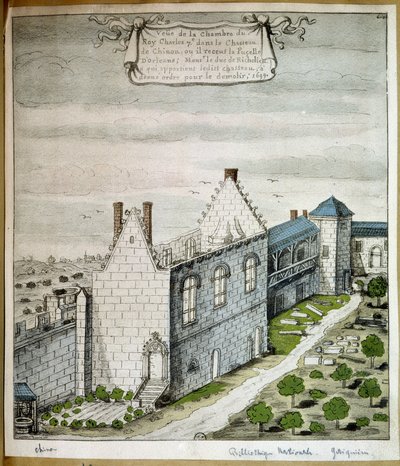 Veüe de la Chambre du
Roy Charles 7e. dans le Chasteau
de Chinon, ou il receut la Pucelle
D'orleans; Mons.r le duc de Richelieu
a qui appartient ledict chasteau, a
donné ordre pour le demolir, 1699.
chinon
Bibliothèque Nationale. Gaignières